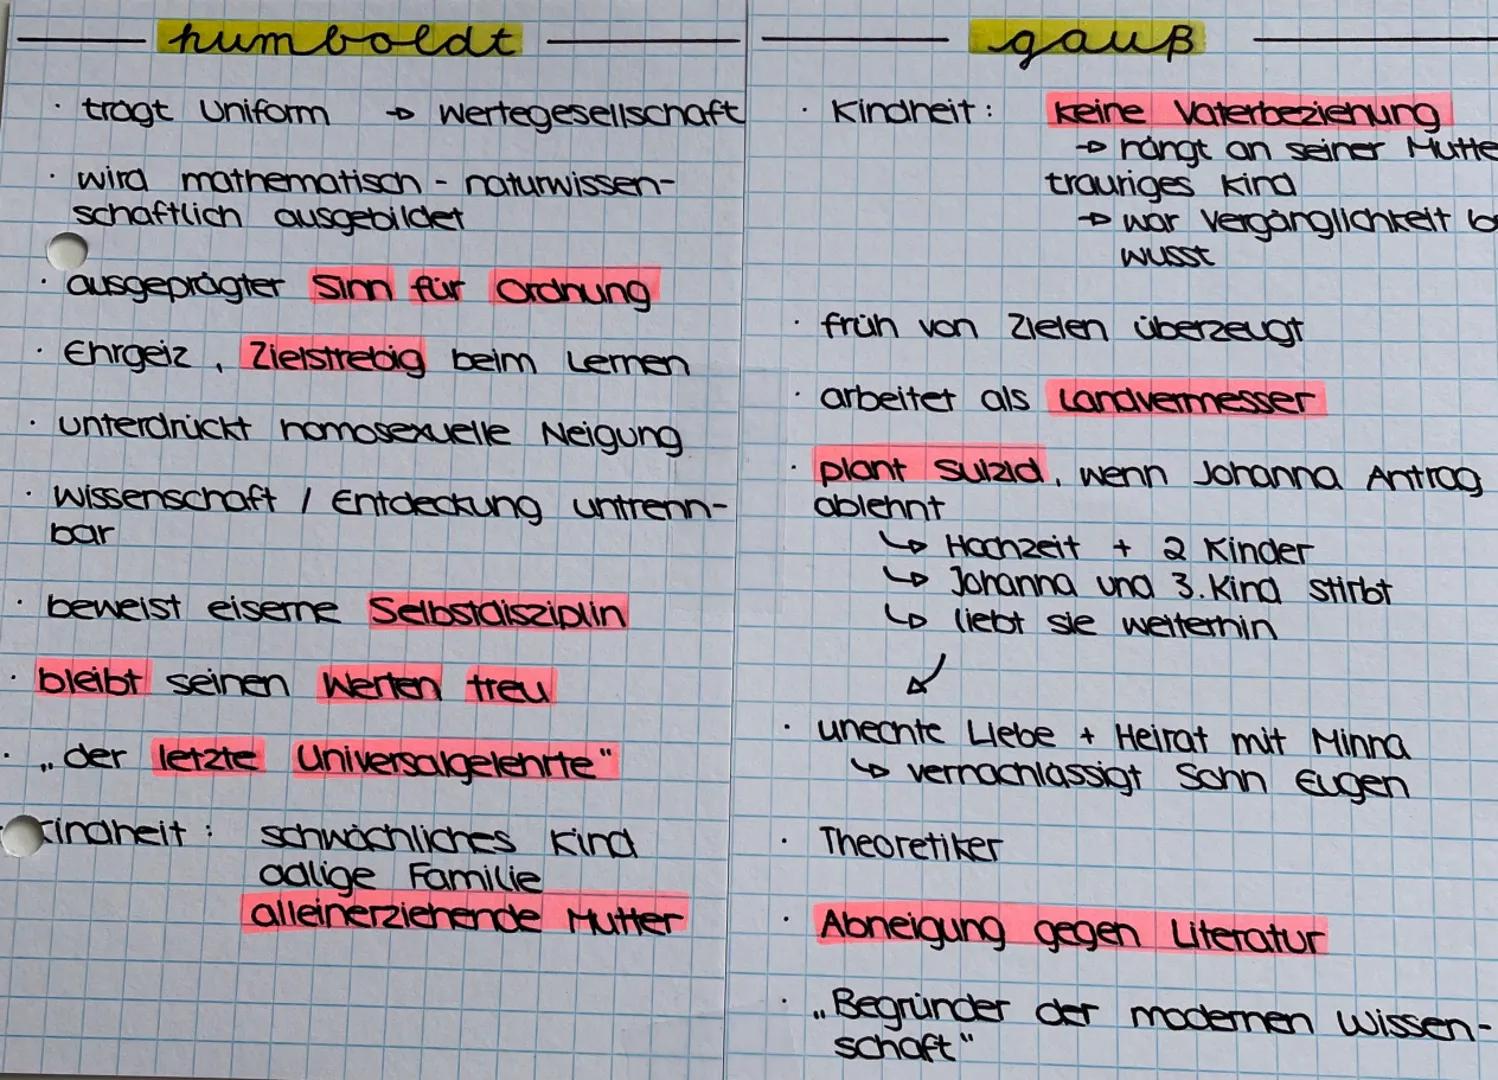 humboldt
· trägt Uniform → Wertegesellschaft
· wird mathematisch - naturwissen-
schaftlich ausgebildet
· ausgeprägter Sinn für Ordnung
· Ehrgeiz, Zielstrebig beim Lernen
· unterdrückt homosexuelle Neigung
· Wissenschaft / Entdeckung untrenn-
bar
· beweist eiserne Selbstdisziplin
· bleibt seinen Werten treu
· „der letzte Universalgelehrte"
Kindheit: schwächliches Kind
adlige Familie
alleinerziehende Mutter
gauß
· Kindheit: keine Vaterbeziehung
→ hängt an seiner Mutte
trauriges Kind
→ war Vergänglichkeit be
wusst
· früh von Zielen überzeugt
· arbeitet als Landvermesser
· plant Suizid, wenn Johanna Antrag
ablehnt
↳ Hochzeit + 2 Kinder
↳ Johanna und 3. Kind stirbt
↳ liebt sie weiterhin
· unechte Liebe + Heirat mit Minna
↳ vernachlässigt Sohn Eugen
· Theoretiker
· Abneigung gegen Literatur
· „Begründer der modernen Wissen-
schaft"